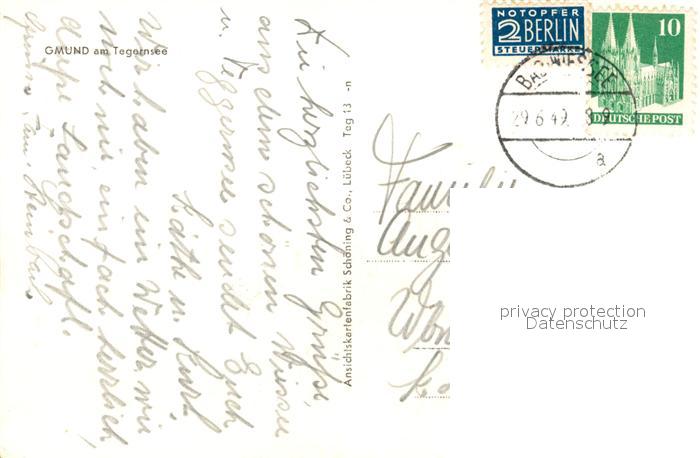 GMUND am Tegernsee
Die herzlichsten Grüße,
aus dem schönen Wiessee
u. Teggernsee sendet Euch
Käthi u. Kurt
Wir haben ein Wetter wie
noch nie, einfach herrlich
Landschaft.
Ansichtskartenfabrik Schöning & Co., Lübeck Teg 13 -n
NOTOPFER
2 BERLIN
STEUERMARKE
10
DEUTSCHE POST
BAD WIESSEE
29.6.49
a
Familie
privacy protection
Datenschutz